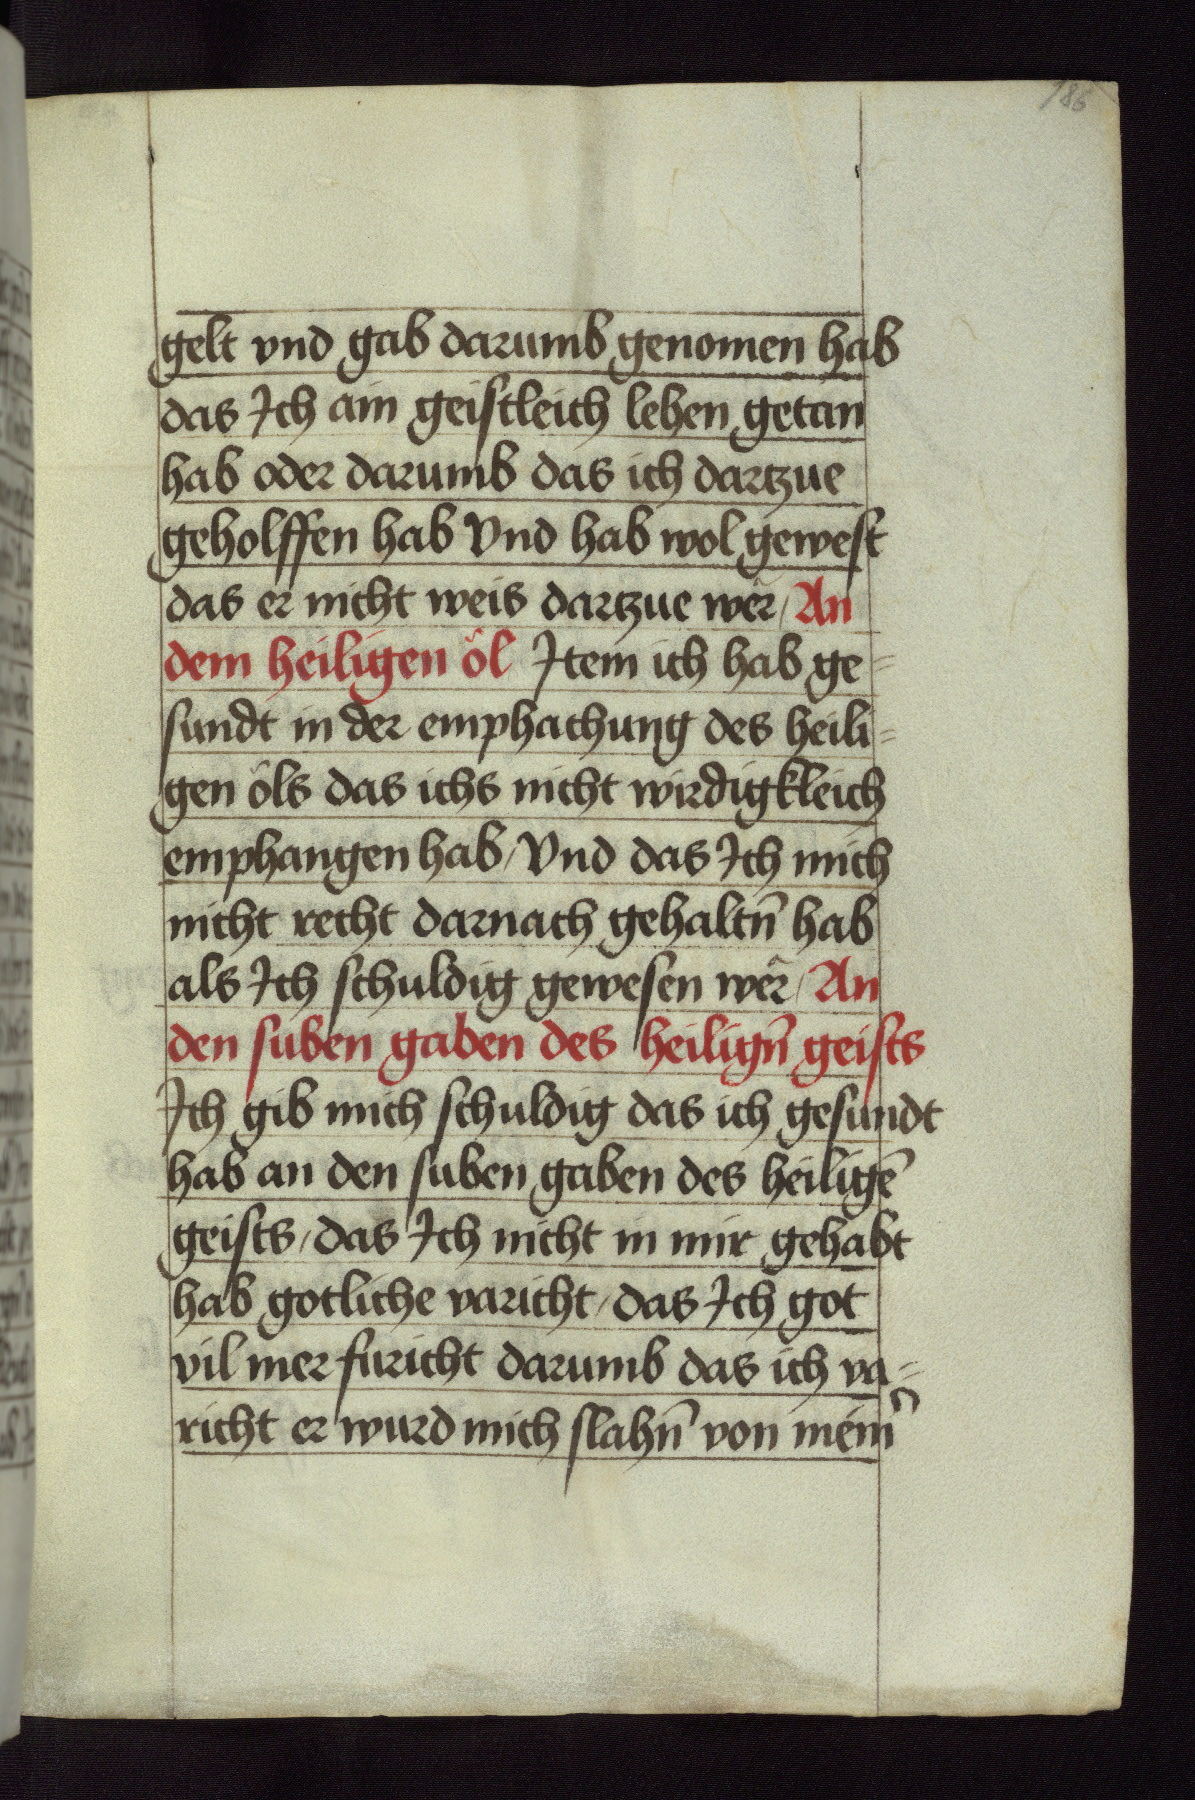 186
gelt vnd gab darumb genomen hab
das Ich ain geistleich lehen getan
hab oder darumb das ich dartzue
geholffen hab Vnd hab wol gewest
das er nicht weis dartzue wër / An
dem heiligen öl Item ich hab ge=
sundt in der emphachung des heili=
gen öls das ichs nicht wirdigkleich
emphangen hab / Vnd das Ich mich
nicht recht darnach gehaltn̄ hab
als Ich schuldig gewesen wër / An
den suben gaben des heilign̄ geists
Ich gib mich schuldig das ich gesundt
hab an den suben gaben des heiligē
geists / das Ich nicht in mir gehabt
hab gotliche varicht / das Ich got
vil mer furicht darumb das ich va=
richt er wurd mich slahn̄ von meim̄